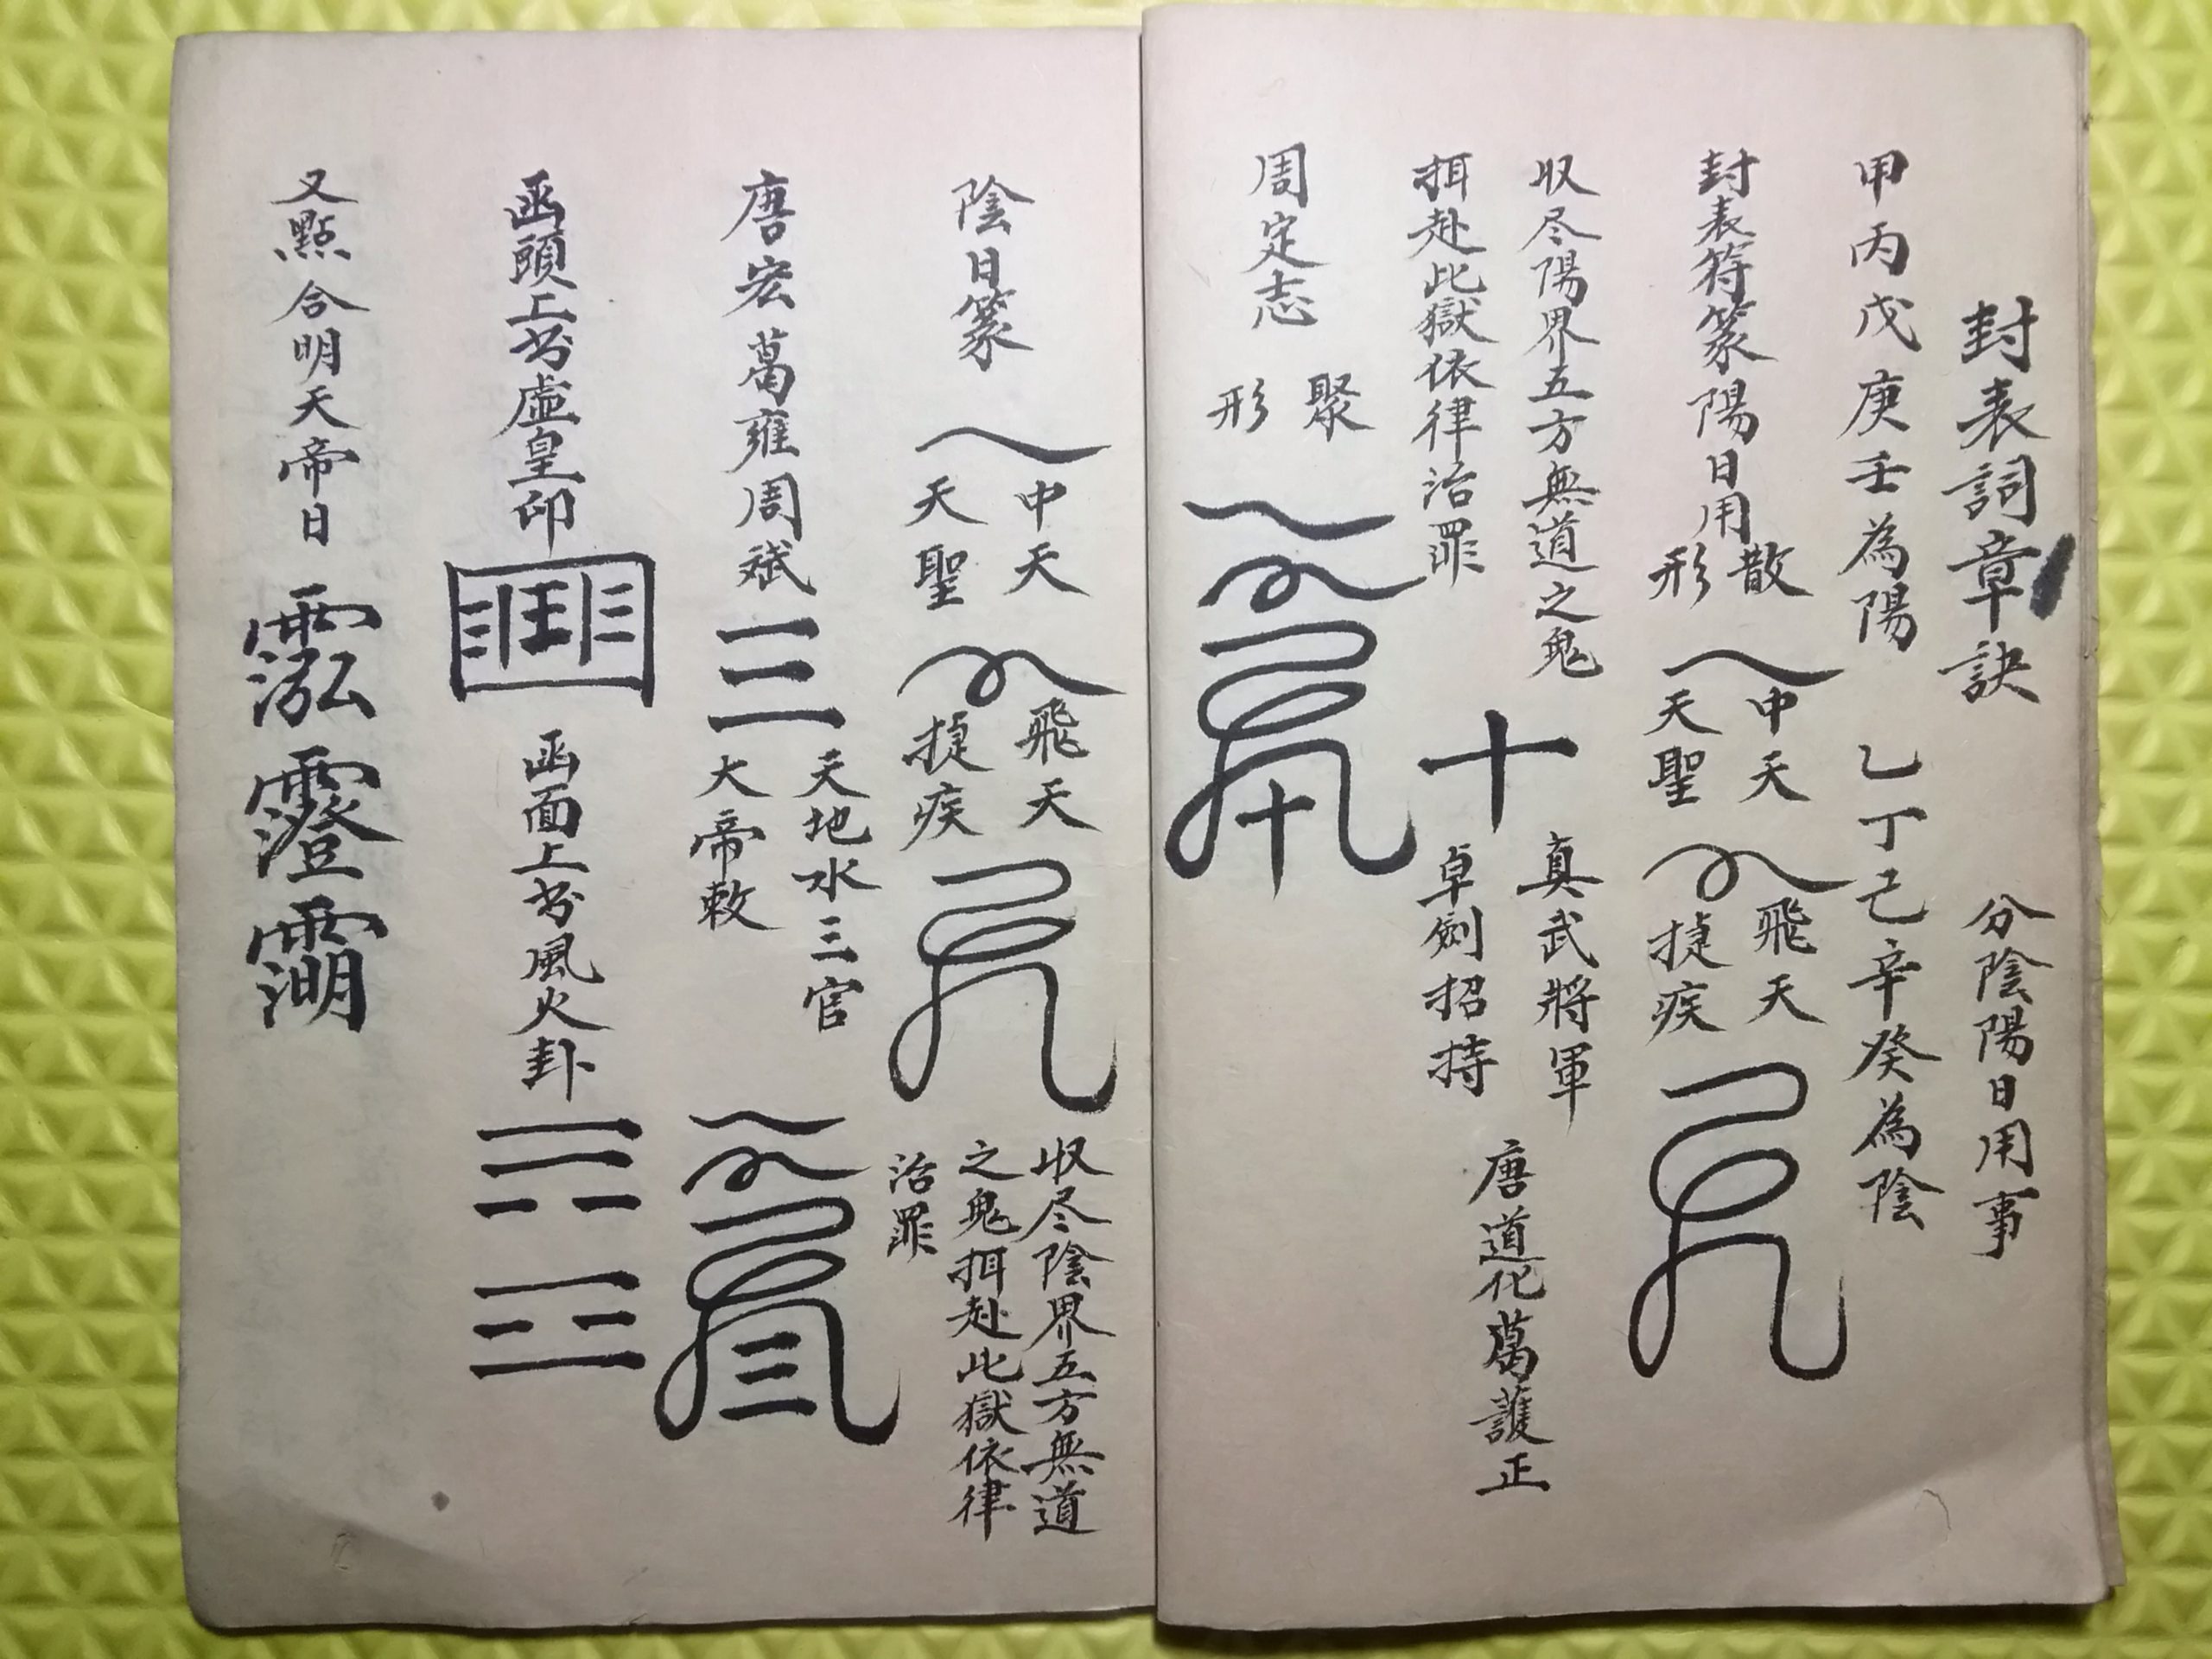 封表詞章訣 分陰陽日用事
甲丙戊庚壬為陽 乙丁己辛癸為陰
封表符篆陽日用 散形 中天天聖 飛天捷疾
収尽陽界五方無道之鬼 真武將軍
拑赴此獄依律治罪 十 卓劍招持
唐道化葛護正
周定志 聚形 十
陰日篆 中天天聖 飛天捷疾 収尽陰界五方無道之鬼拑赴此獄依律治罪
唐宏葛雍周斌 三 天地水三官大帝敕 三
函頭上书虛皇印 函面上书風火卦
又點合明天帝日